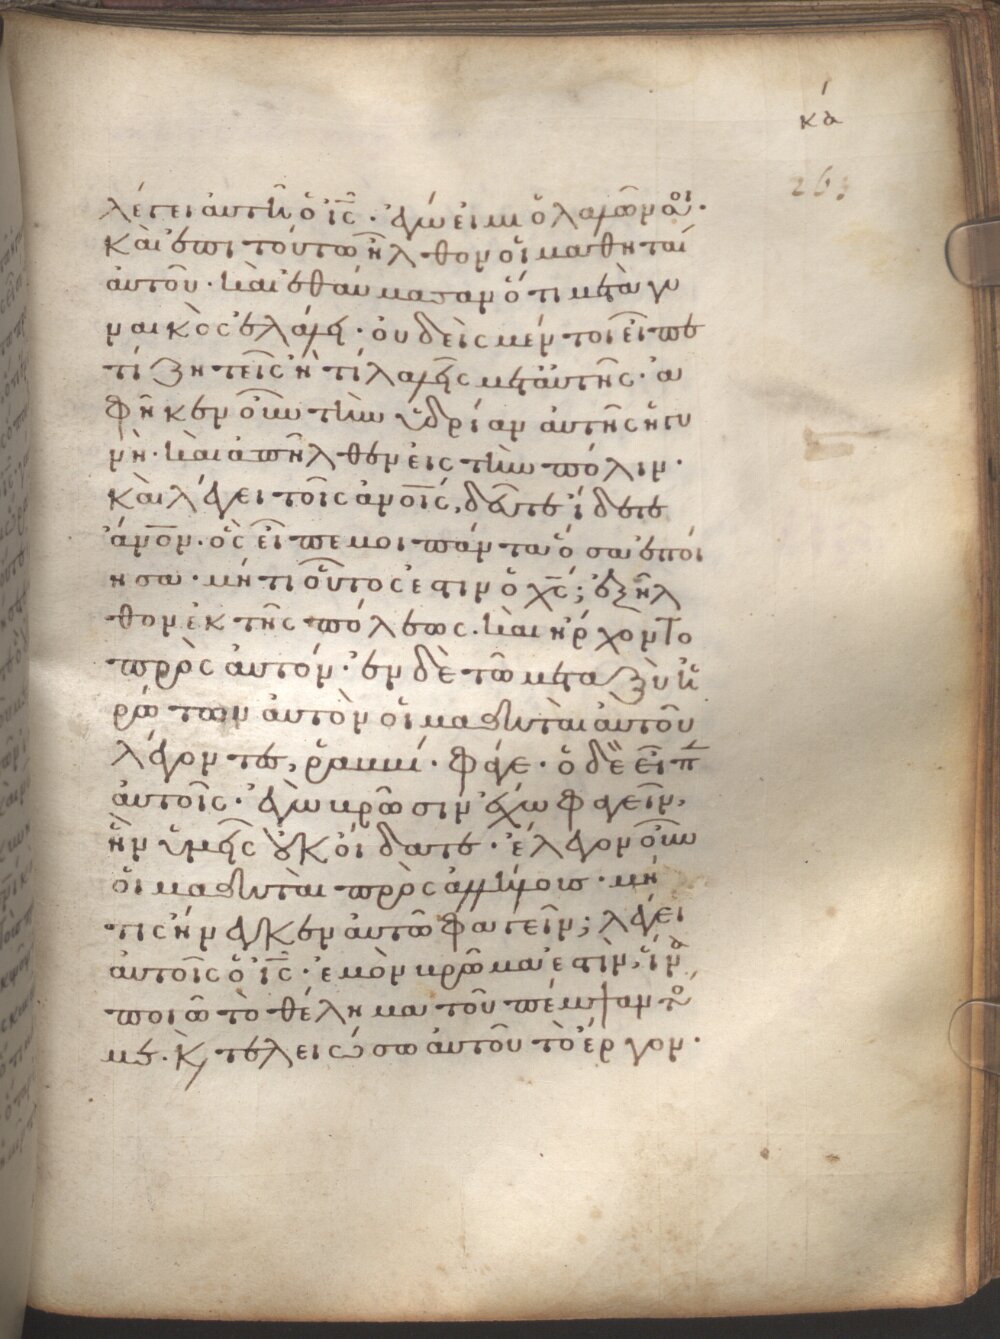 κα
263
λέγει αυτῆ ὁ ις̅ · ἐγώ ειμι ὁ λαλῶν σοι ·
Και ἐπι τούτω ἦλθον οἱ μαθηταί
ἀυτοῦ · και ἐθαύμασαν ὅτι μετὰ γυ
ναικὸς ἐλάλει · ὀυδεὶς μέν τοι εἶπε
τί ζητεῖς ἢ τί λαλεῖς μετ ἀυτῆς · ἀ
φῆκεν οῦν τὴν ὑδρίαν ἀυτῆς ἡ γυ
νὴ · και ἀπῆλθεν εις τὴν πόλιν ·
Και λέγει τοῖς ἀν̅οις, δεῦτε ἴδετε
ἄν̅ον · ὃς εἶπε μοι πάντα ὅσα ἐποί
ησα · μήτι οὗτος ἐστιν ὁ χς̅; ἐξῆλ
θον ἐκ τῆς πόλεως · και ἤρχοντο
πρὸς ἀυτόν · ἐν δὲ τῶ μεταξὺ ἠ
ρώτων ἀυτὸν οἱ μαθηται ἀυτοῦ
λέγοντες, ῥαββί · φάγε · ὁ δὲ εἶπ
ἀυτοῖς · ἐγὼ βρῶσιν ἔχω φαγεῖν,
ἣν ὑμεῖς ὀυκ ὀίδατε · ἔλεγον οῦν
ὁι μαθηται πρὸς ἀλλήλους · μή
τις ἤνεγκεν ἀυτῶ φαγεῖν; λέγει
ἀυτοῖς ὁ ις̅ · ἐμὸν βρῶμα ἐστιν, ἵνα
ποιῶ τὸ θέλημα τοῦ πέμψαντός
με · Κ, τελειώσω ἀυτοῦ τὸ ἔργον ·